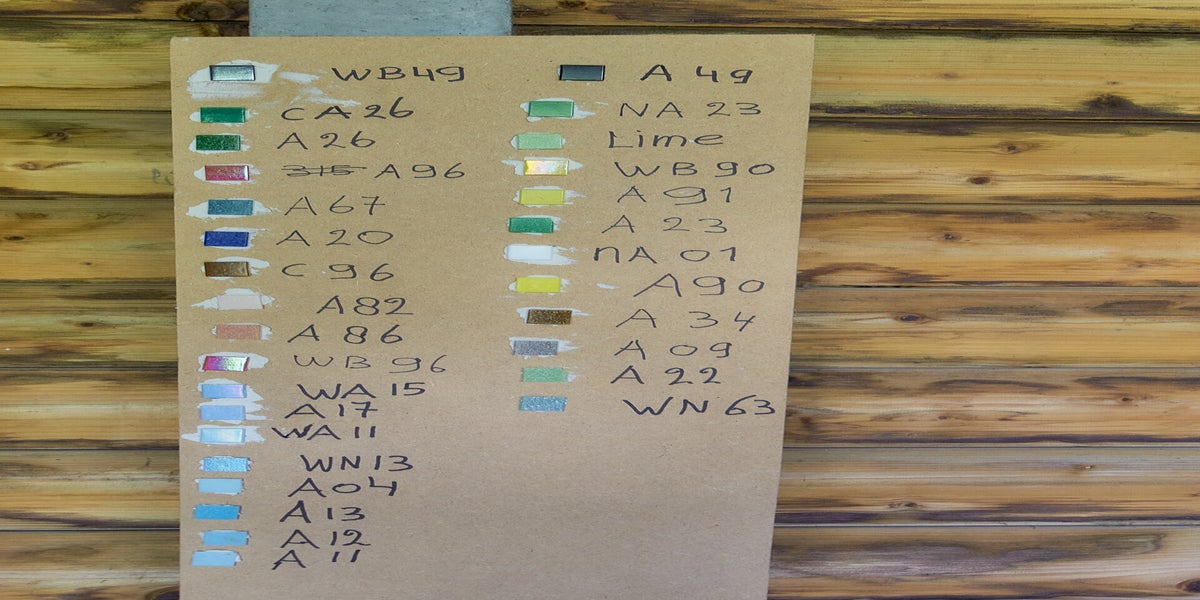 WB49
CA26
A26
315 A96
A67
A20
C96
A82
A86
WB96
WA15
A17
WA11
WN13
A04
A13
A12
A11
A49
NA23
Lime
WB90
A91
A23
nA01
A90
A34
A09
A22
WN63